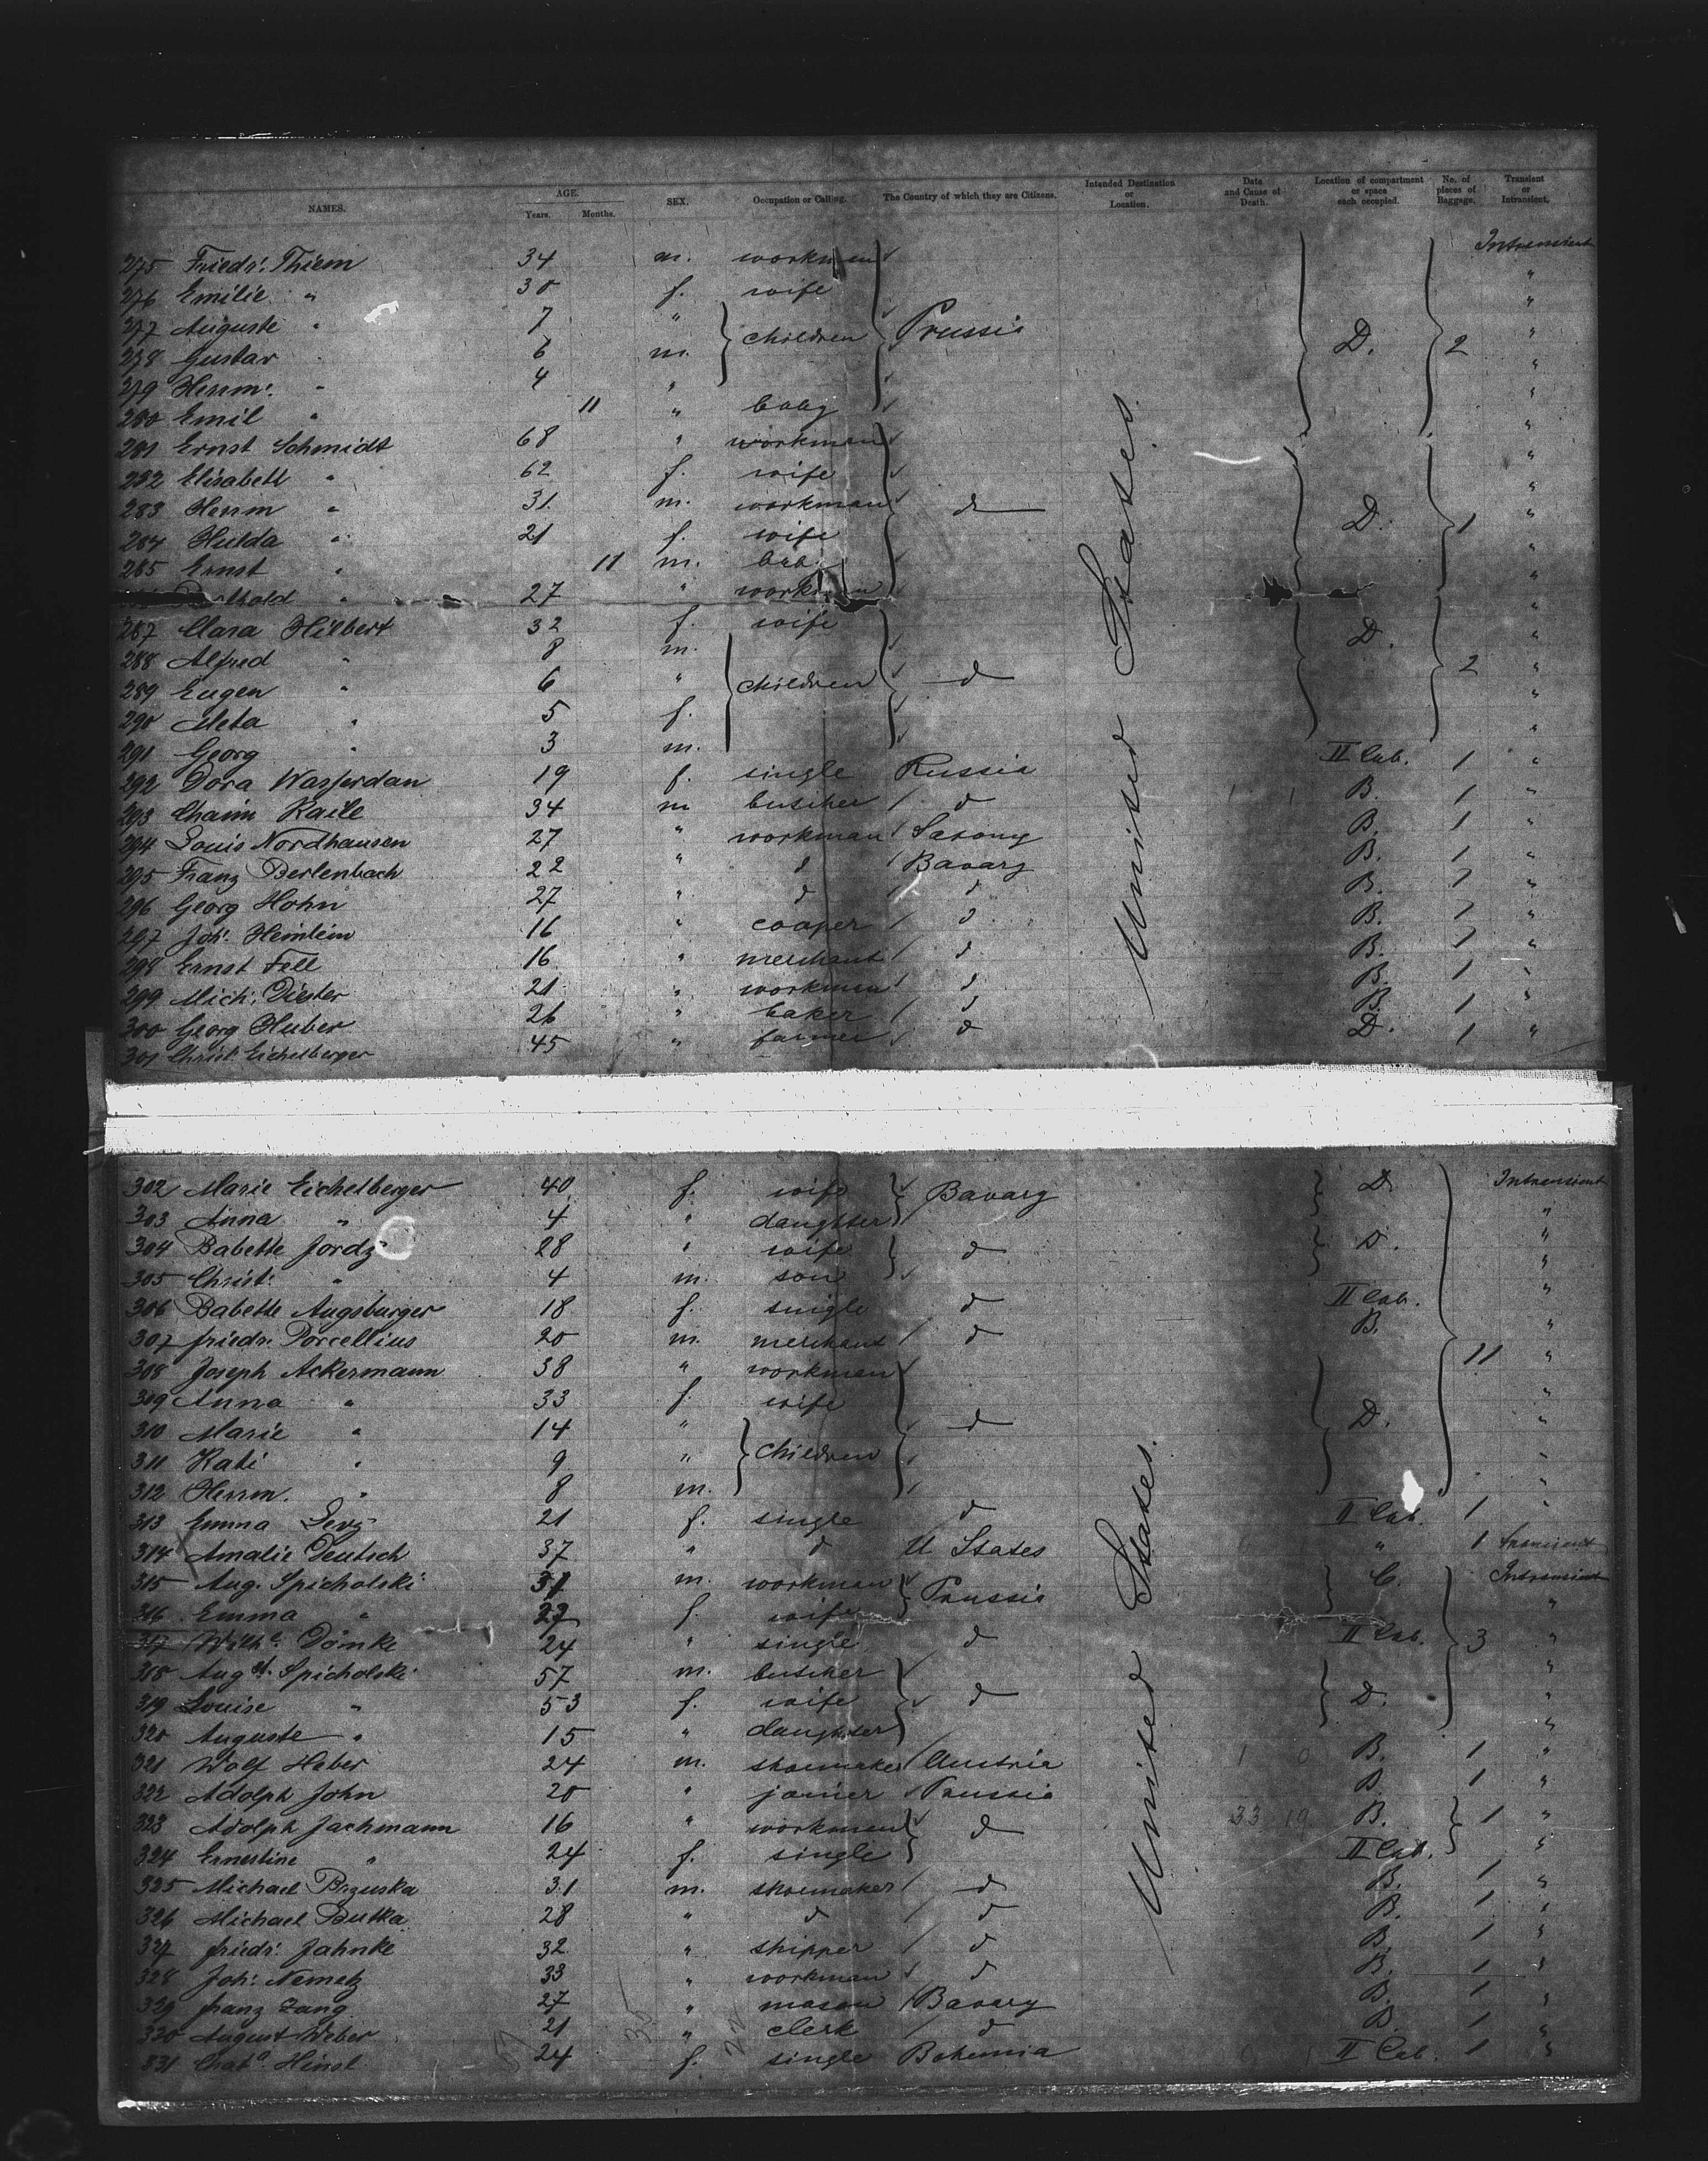 NAMES. AGE. Years. Months. SEX. Occupation or Calling. The Country of which they are Citizens. Intended Destination or Location. Date and Cause of Death. Location of compartment or space each occupied. No. of pieces of Baggage. Transient or Intransient.
275 Friedr. Thiem 34 m. workman Intransient
276 Emilie " 30 f. wife "
277 Auguste " 7 " children Prussia D. 2 "
278 Gustav " 6 m. "
279 Herrm. " 4 " "
280 Emil " 11 " baby "
281 Ernst Schmidt 68 " workman "
282 Elisabeth " 62 f. wife "
283 Herrm " 31 m. workman d D. 1 "
284 Hulda " 21 f. wife "
285 Ernst " 11 m. "
27 " workman "
287 Clara Hilbert 32 f. wife D. "
288 Alfred " 8 m. 2 "
289 Eugen " 6 " children d "
290 Meta " 5 f. "
291 Georg " 3 m. "
292 Dora 19 f. single Russia II Cab. 1 "
293 Chaim Raile 34 m butcher d B. 1 "
294 Louis Nordhausen 27 " workman Saxony B. 1 "
295 Franz Berlenbach 22 " d Bavary B. 1 "
296 Georg Hohn 27 " d d B. 1 "
297 Joh. Heinlein 16 " cooper d B. 1 "
298 Ernst Fell 16 " merchant d B. 1 "
299 Mich. Diester 21 " workman d B. 1 "
300 Georg Huber 26 " baker d B. 1 "
301 Christ. Eichelberger 45 " farmer d D. 1 "
United States.
302 Marie Eichelberger 40 f. wife Bavary D. Intransient
303 Anna " 4 " daughter "
304 Babette Jordz 28 " wife d D. "
305 Christ. " 4 m. son "
306 Babette Augsburger 18 f. single d II Cab. "
307 Friedr. Porcellius 20 m. merchant d B. "
308 Joseph Ackermann 38 " workman 11 "
309 Anna " 33 f. wife "
310 Marie " 14 " children d D. "
311 Kati " 9 " "
312 Herrm. " 8 m. "
313 Emma Levy 21 f. single d II Cab. 1 "
314 Amalie Deutsch 37 " d U States " 1 transient
315 Aug. Spicholski 31 m. workman Prussia C. Intransient
316 Emma " 27 f. wife "
317 Dömke 24 " single d II Cab. 3 "
318 Augst. Spicholski 57 m. butcher "
319 Louise " 53 f. wife d D. "
320 Auguste " 15 " daughter "
321 Wolf Haber 24 m. shoemaker Austria B. 1 "
322 Adolph John 20 " joiner Prussia B. 1 "
323 Adolph Jachmann 16 " workman d 33 19 B. 1 "
324 Ernestine " 24 f. single II Cab. "
325 Michael Brzuska 31 m. shoemaker d B. 1 "
326 Michael Butka 28 " d d B. 1 "
327 Friedr. Jahnke 32 " shipper d B. 1 "
328 Joh. Nemetz 33 " workman d B. 1 "
329 Franz Zang 27 " mason Bavary B. 1 "
330 August Weber 21 " clerk d B. 1 "
331 24 f. single Bohemia II Cab. 1 "
United States.